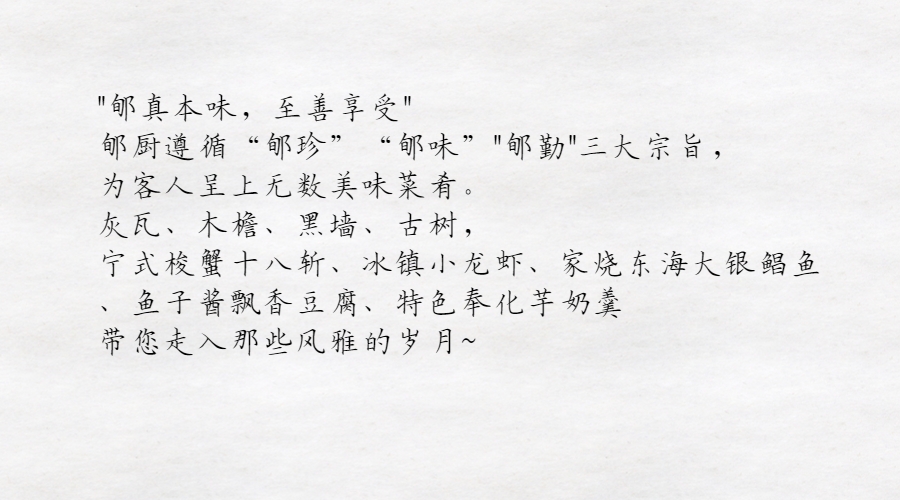 "郇真本味，至善享受"
郇厨遵循“郇珍”“郇味”"郇勤"三大宗旨，
为客人呈上无数美味菜肴。
灰瓦、木檐、黑墙、古树，
宁式梭蟹十八斩、冰镇小龙虾、家烧东海大银鲳鱼
、鱼子酱飘香豆腐、特色奉化芋奶羹
带您走入那些风雅的岁月~